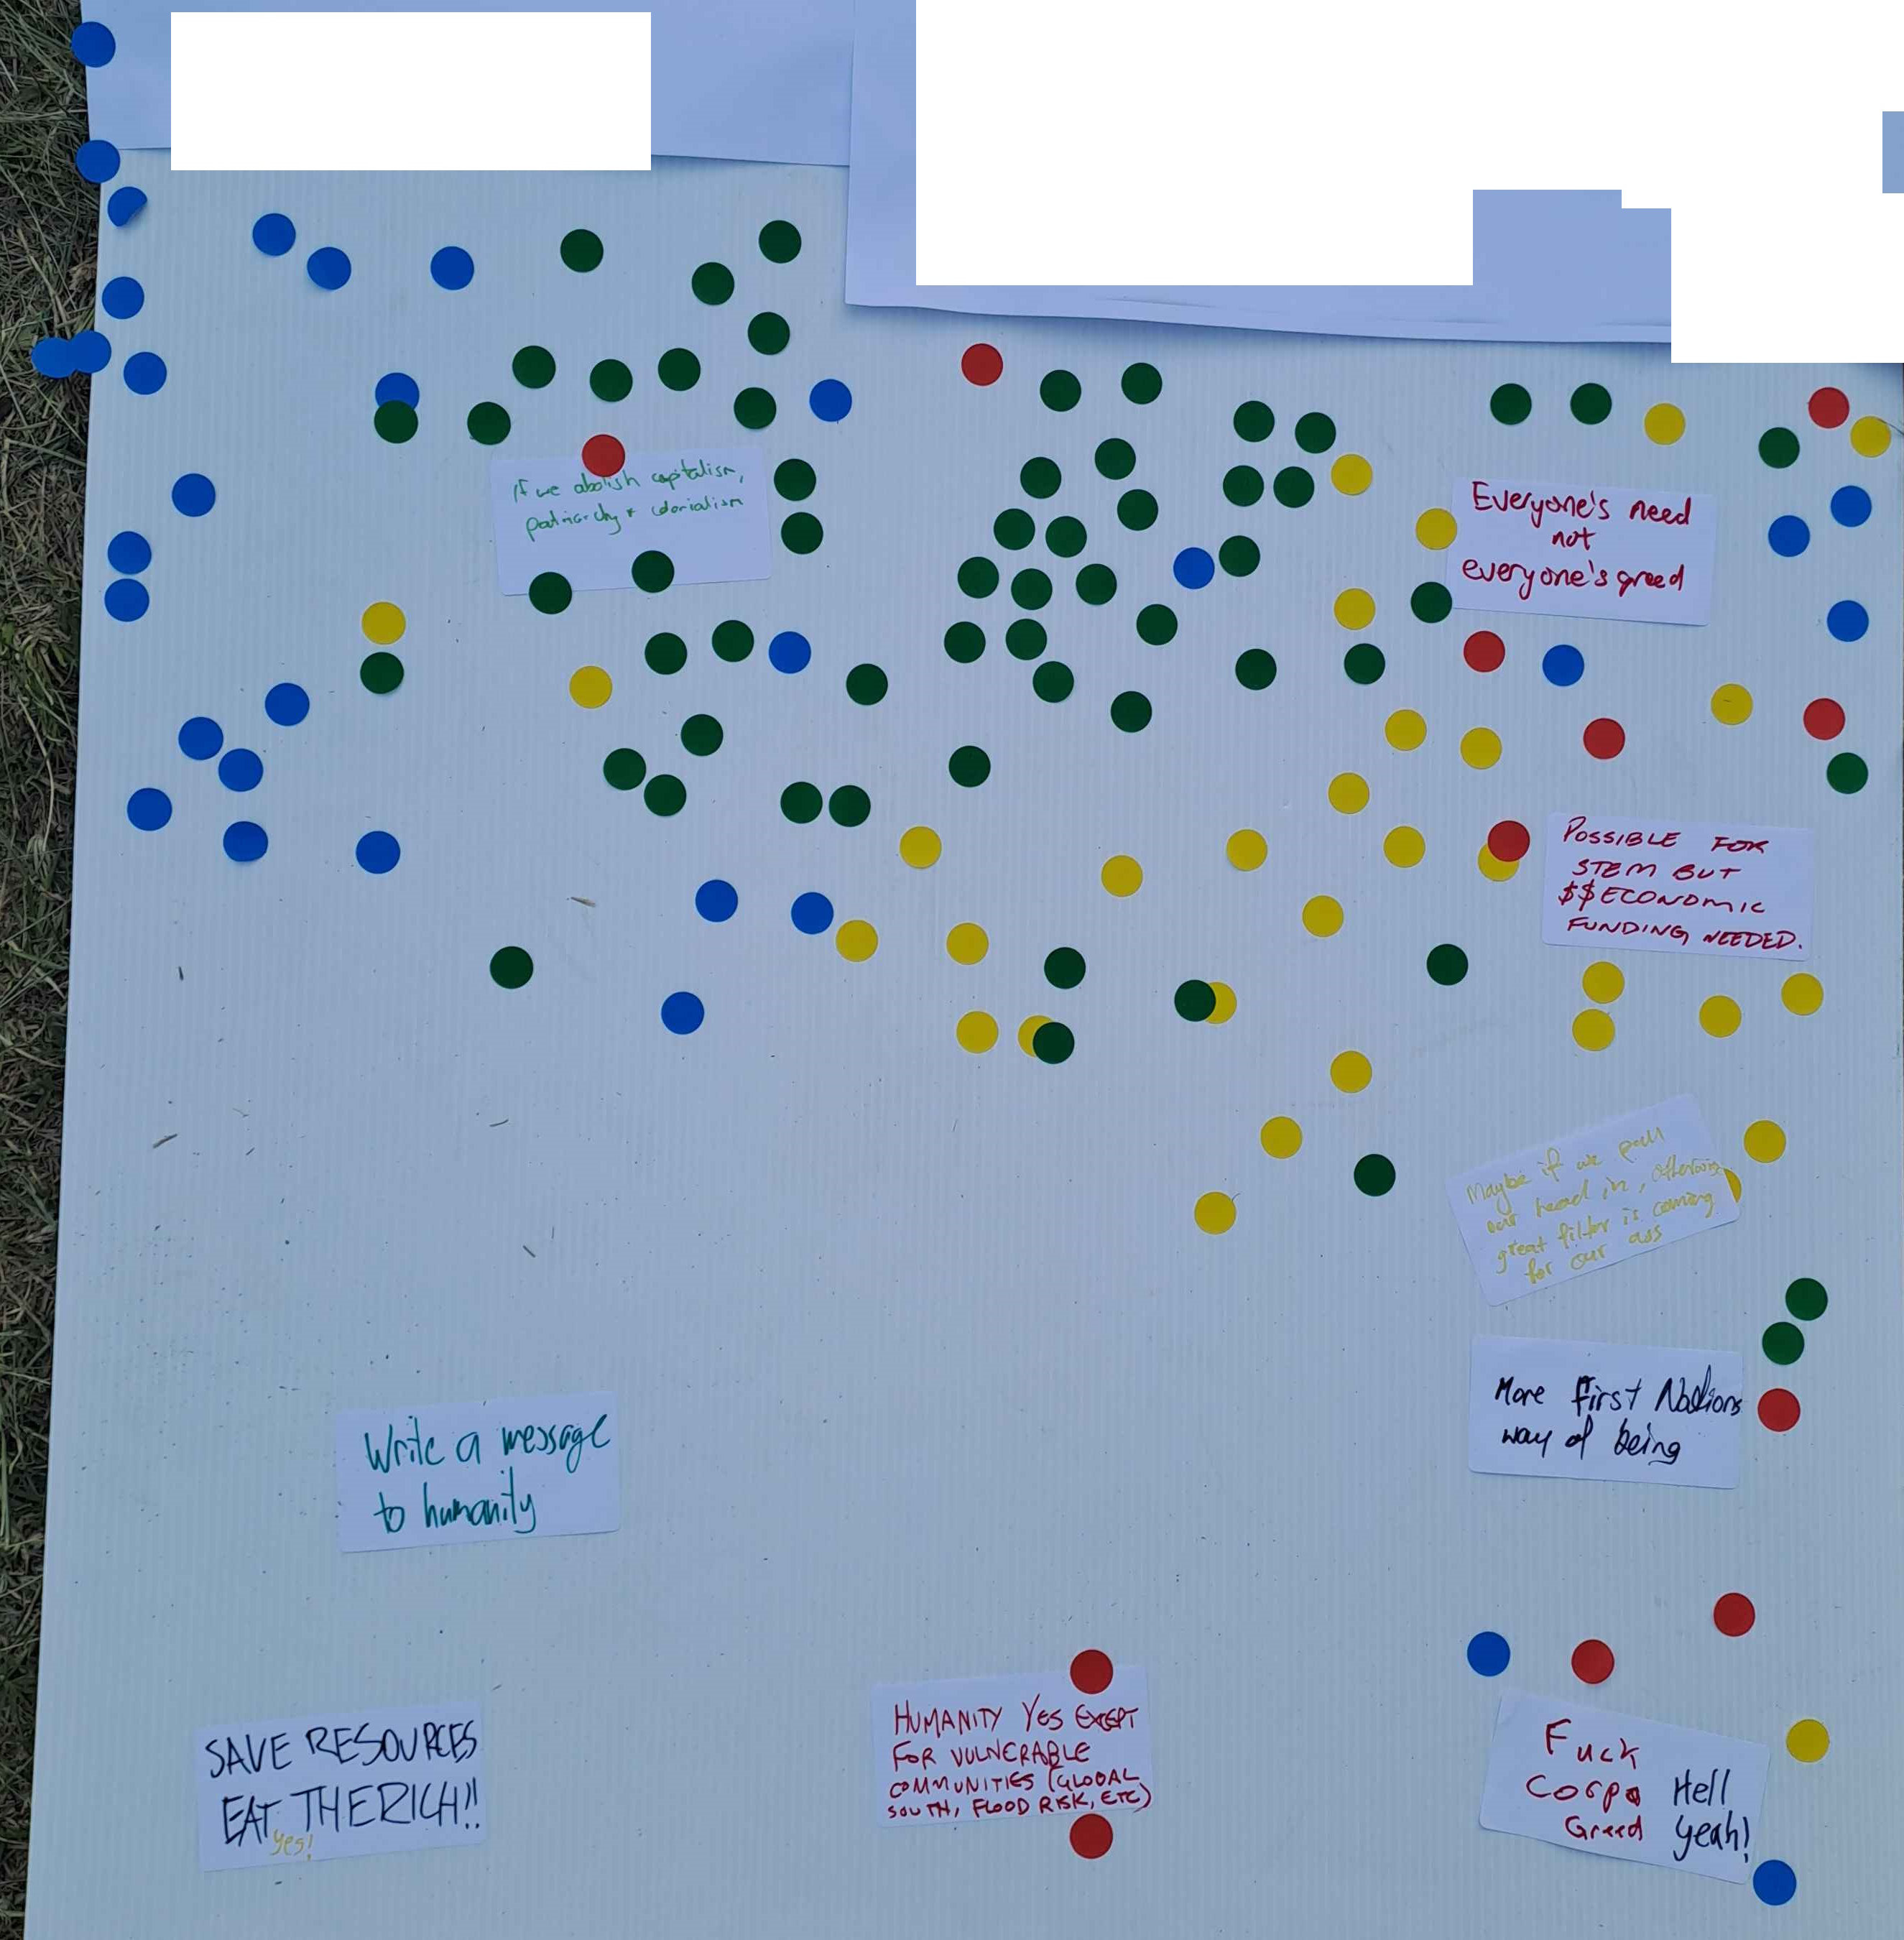 If we abolish capitalism,
patriarchy + colonialism
Everyone's need
not
everyone's greed
POSSIBLE FOR
STEM BUT
$$ ECONOMIC
FUNDING NEEDED.
Maybe if we pull
our head in, otherwise
great filter is coming
for our ass
More first Nations
way of being
Write a message
to humanity
SAVE RESOURCES
EAT THE RICH!!
yes!
HUMANITY YES EXCEPT
FOR VULNERABLE
COMMUNITIES (GLOBAL
SOUTH, FLOOD RISK, ETC)
Fuck
Corpo
Greed
Hell
Yeah!